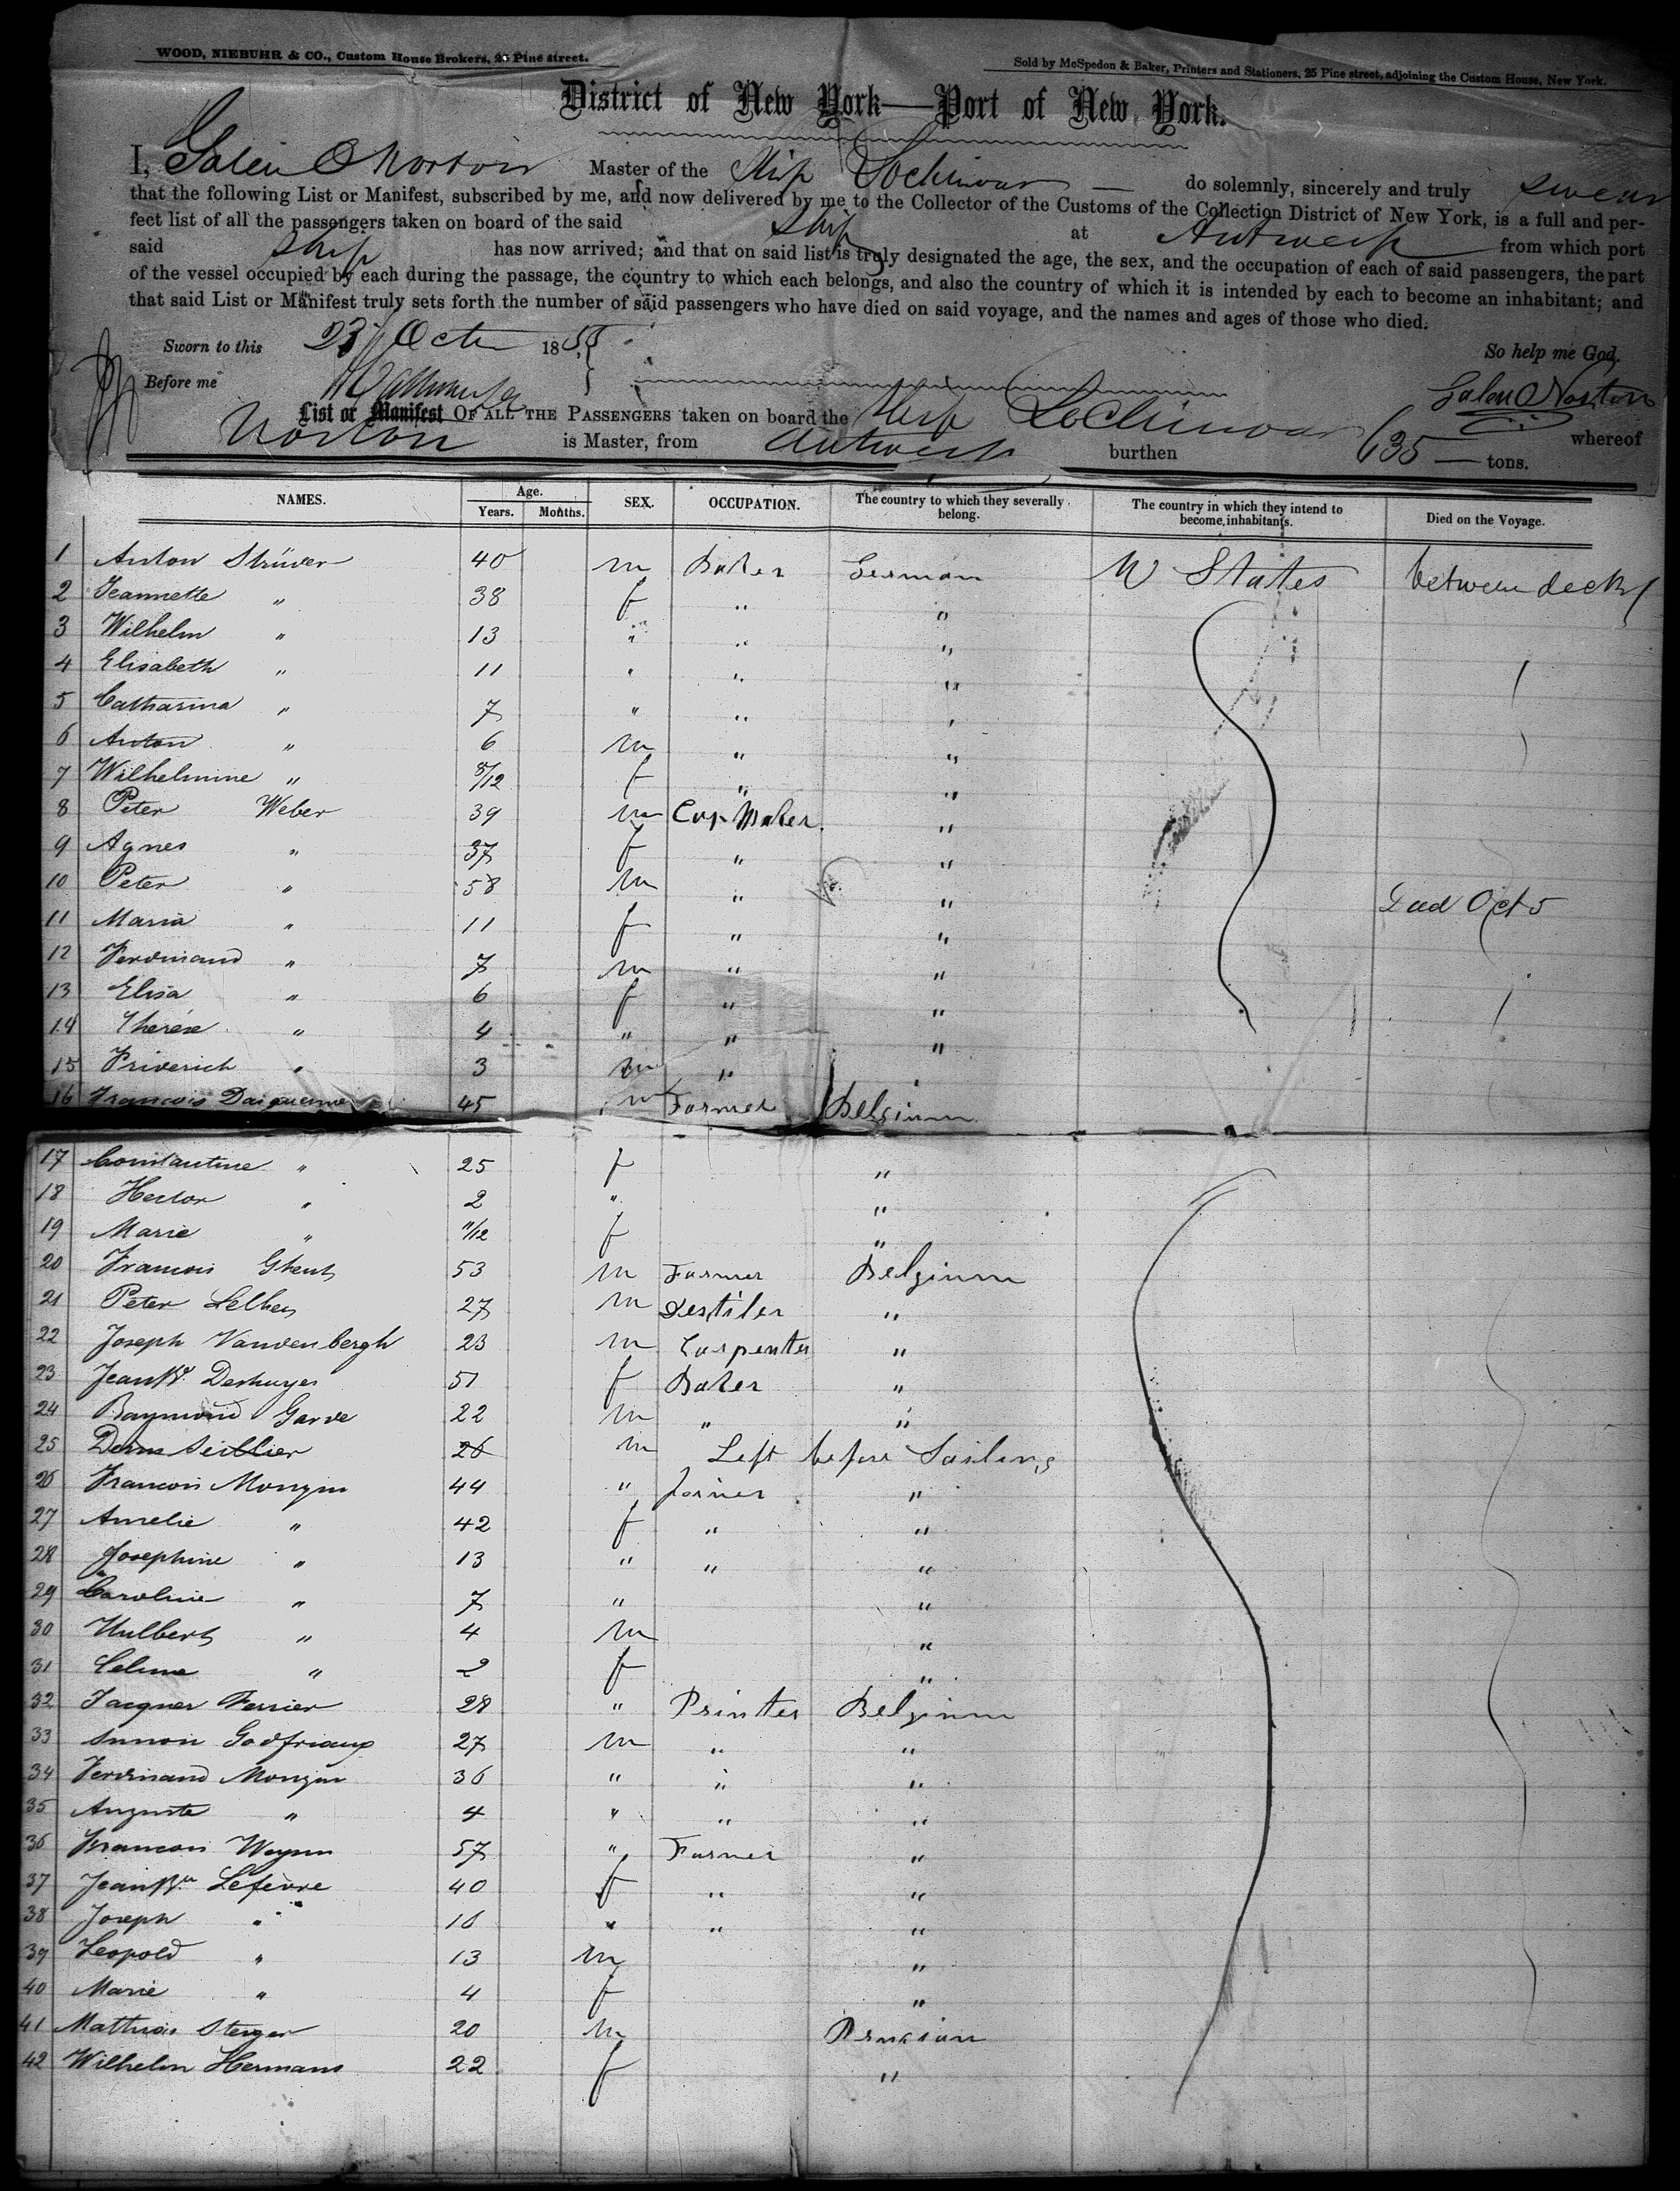 WOOD, NIEBUHR & CO., Custom House Brokers, 25 Pine street.
Sold by McSpedon & Baker, Printers and Stationers, 25 Pine street, adjoining the Custom House, New York.
District of New York—Port of New York.
I, Galen O Norton Master of the Ship Lochinvar — do solemnly, sincerely and truly swear
that the following List or Manifest, subscribed by me, and now delivered by me to the Collector of the Customs of the Collection District of New York, is a full and per-
fect list of all the passengers taken on board of the said Ship at Antwerp from which port
said Ship has now arrived; and that on said list is truly designated the age, the sex, and the occupation of each of said passengers, the part
of the vessel occupied by each during the passage, the country to which each belongs, and also the country of which it is intended by each to become an inhabitant; and
that said List or Manifest truly sets forth the number of said passengers who have died on said voyage, and the names and ages of those who died.
Sworn to this 23 Octr 1855 So help me God,
Before me Galen O Norton
List or Manifest OF ALL THE PASSENGERS taken on board the Ship Lochinvar whereof
Norton is Master, from Antwerp burthen 635 — tons.
NAMES. Age. Years. Months. SEX. OCCUPATION. The country to which they severally belong. The country in which they intend to become inhabitants. Died on the Voyage.
1 Anton Strüver 40 m Baker German U States between decks
2 Jeannette " 38 f " "
3 Wilhelm " 13 " " "
4 Elisabeth " 11 " " "
5 Catharina " 7 " " "
6 Anton " 6 m " "
7 Wilhelmine " 8/12 f " "
8 Peter Weber 39 m Cap Maker. "
9 Agnes " 37 f " "
10 Peter " 58 m " " Died Oct 5
11 Maria " 11 f " "
12 Ferdinand " 7 m " "
13 Elisa " 6 f " "
14 Therese " 4 " " "
15 Friderich " 3 m " "
16 Francois 45 m Farmer Belgium
17 Constantine " 25 f "
18 Hector " 2 " "
19 Marie " 11/12 f "
20 Francois Ghent 53 m Farmer Belgium
21 Peter 27 m Destiler "
22 Joseph Vandenbergh 23 m Carpenter "
23 Jean Bt. Deshayes 51 f Baker "
24 Raymond Garve 22 m " "
25 26 m Left before Sailing
26 Francois Mongin 44 " Joiner "
27 Amelie " 42 f " "
28 Josephine " 13 " " "
29 Caroline " 7 " "
30 Hulbert " 4 m "
31 Celine " 2 f "
32 Jacques Ferrier 28 " Printer Belgium
33 Simon Godfriaux 27 m " "
34 Ferdinand Mongin 36 " " "
35 Auguste " 4 " " "
36 Francois 57 " Farmer "
37 Jean Bte Lefèvre 40 f " "
38 Joseph " 16 " " "
39 Leopold " 13 m "
40 Marie " 4 f "
41 Mathias Steiger 20 m Prussian
42 Wilhelm Hermans 22 f "